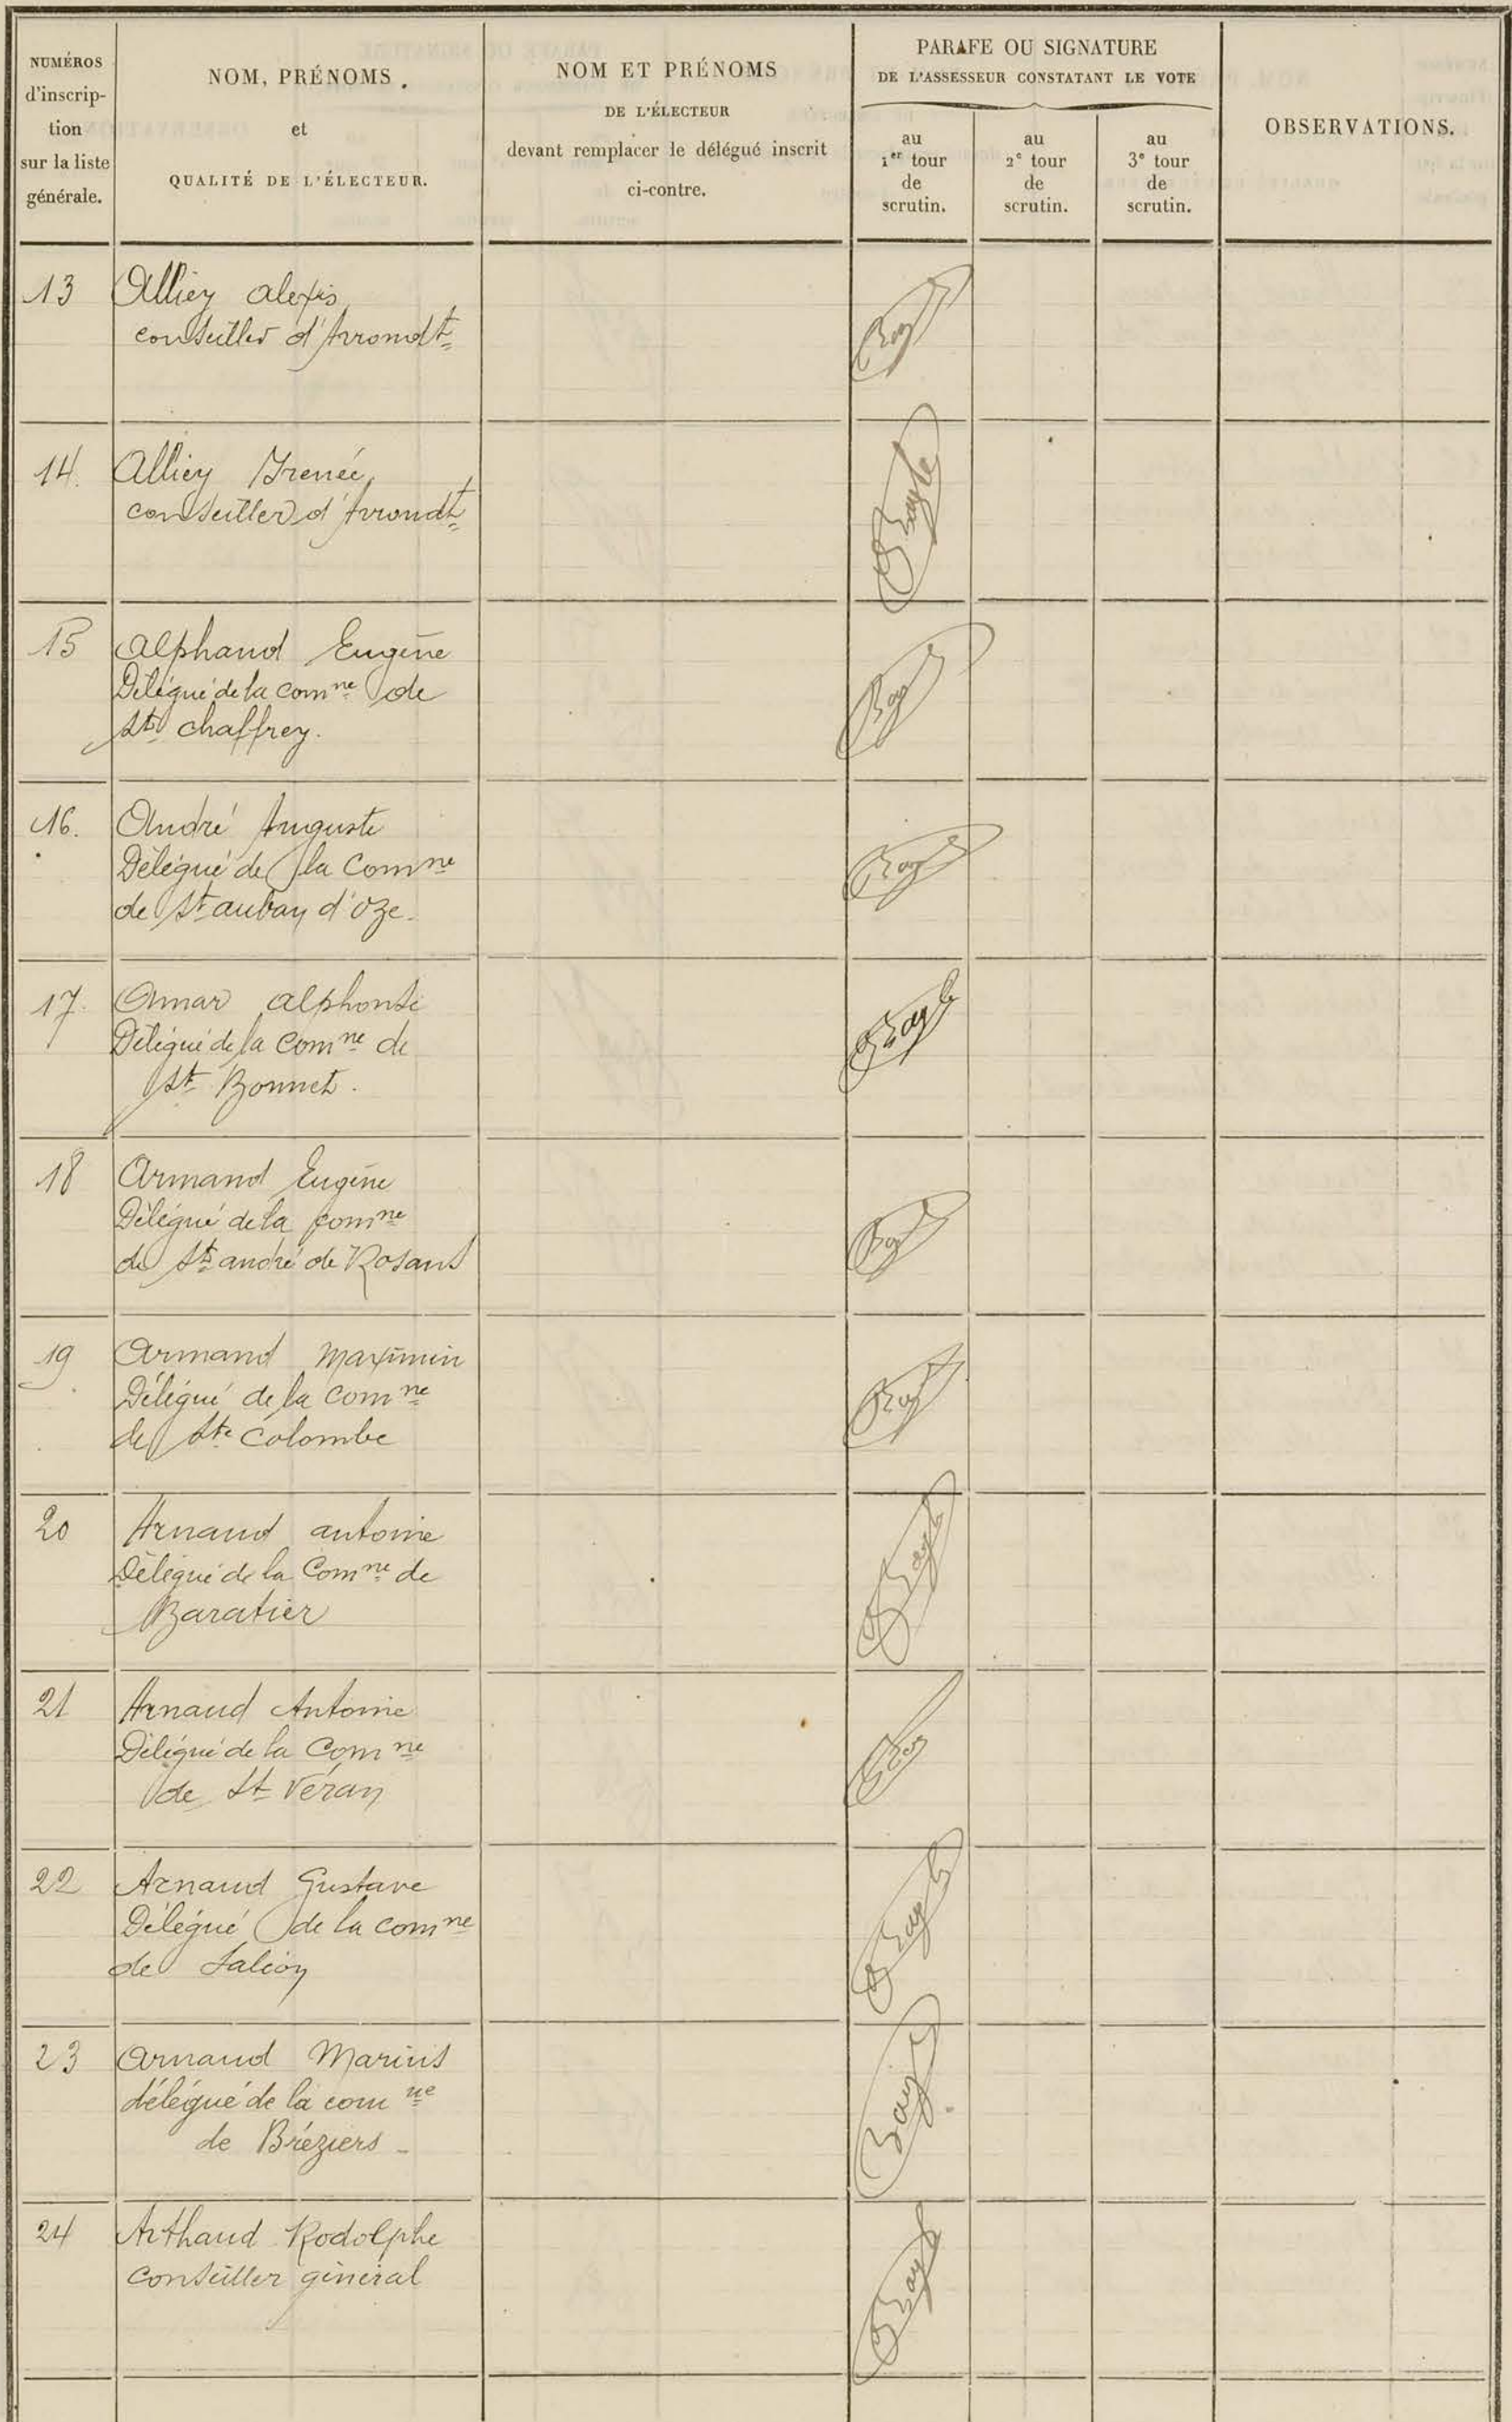 NUMÉROS
d'inscrip-
tion
sur la liste
générale.
NOM, PRÉNOMS.
et
QUALITÉ DE L'ÉLECTEUR.
NOM ET PRÉNOMS
DE L'ÉLECTEUR
devant remplacer le délégué inscrit
ci-contre.
PARAFE OU SIGNATURE
DE L'ASSESSEUR CONSTATANT LE VOTE
au
1er tour
de
scrutin.
au
2e tour
de
scrutin.
au
3e tour
de
scrutin.
OBSERVATIONS.
13 Alliey alexis
conseiller d'Arrondt
14. Alliey Irenée
conseiller d'Arrondt
15 Alphand Eugène
Délégué de la comne de
St chaffrey.
16. André Auguste
Délégué de la Comne
de St auban d'Oze.
17. Amar alphonse
Délégué de la Comne de
St Bonnet.
18 Armand Eugène
Délégué de la comne
de St andré de Rosans
19 Armand Maximin
Délégué de la Comne
de Ste Colombe
20 Arnaud antoine
Délégué de la Comne de
Baratier
21 Arnaud Antoine
Délégué de la Comne
de St Véran
22 Arnaud Gustave
Délégué de la comne
de Saléon
23 Arnaud Marius
délégué de la comne
de Bréziers -
24 Arthaud Rodolphe
Conseiller général